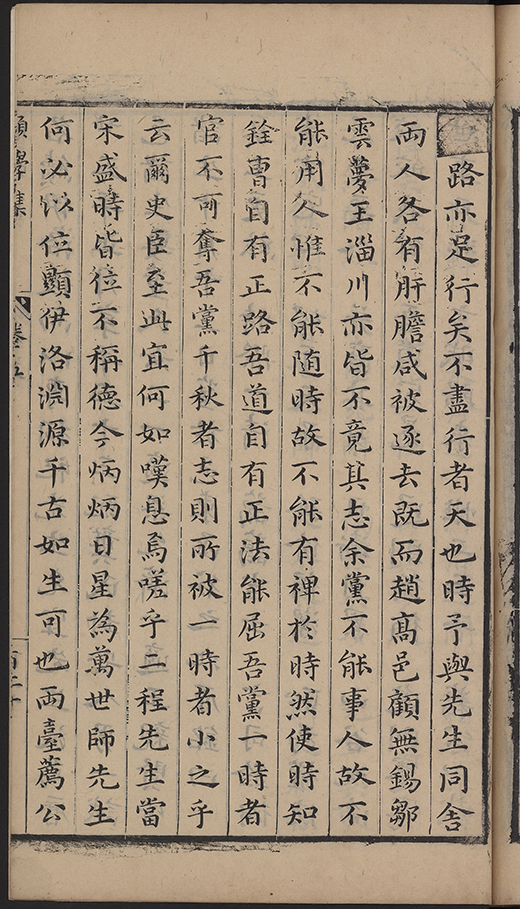 路亦足行矣不盡行者天也時予與先生同舍
兩人各有肝膽咸被逐去既而趙高邑顧無錫鄒
雲夢王淄川亦皆不竟其志余黨不能事人故不
能用人惟不能随時故不能有裨於時然使時知
銓曹自有正路吾道自有正法能屈吾黨一時者
官不可奪吾黨千秋者志則所被一時者小之乎
云爾史臣至此宜何如嘆息焉嗟乎二程先生當
宋盛時皆位不稱德今炳炳日星為萬世師先生
何必以位顯伊洛淵源千古如生可也兩臺薦公
學集
卷十五